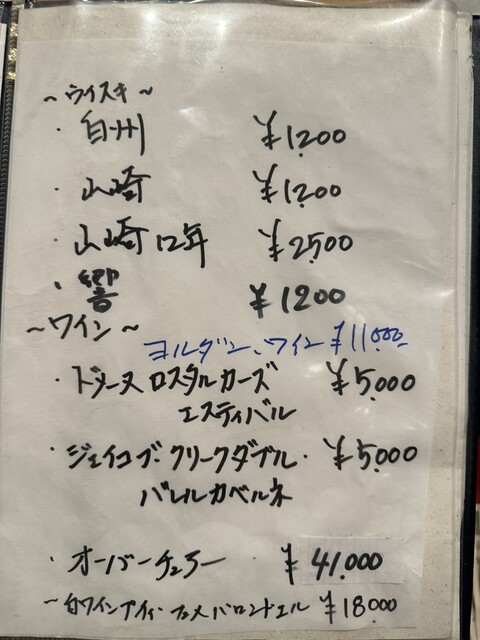 ～ウイスキ～
・白州 ¥1200
・山崎 ¥1200
山崎12年 ¥2500
・響 ¥1200
～ワイン～
ヨルダン、ワイン ¥11.000
・ドメーヌ ロスタルカーズ ¥5.000
エスティバル
・ジェイコブ・クリークダブル・ ¥5.000
バレルカベルネ
・オーバーチュアー ¥41.000
～白ワイン ¥18.000